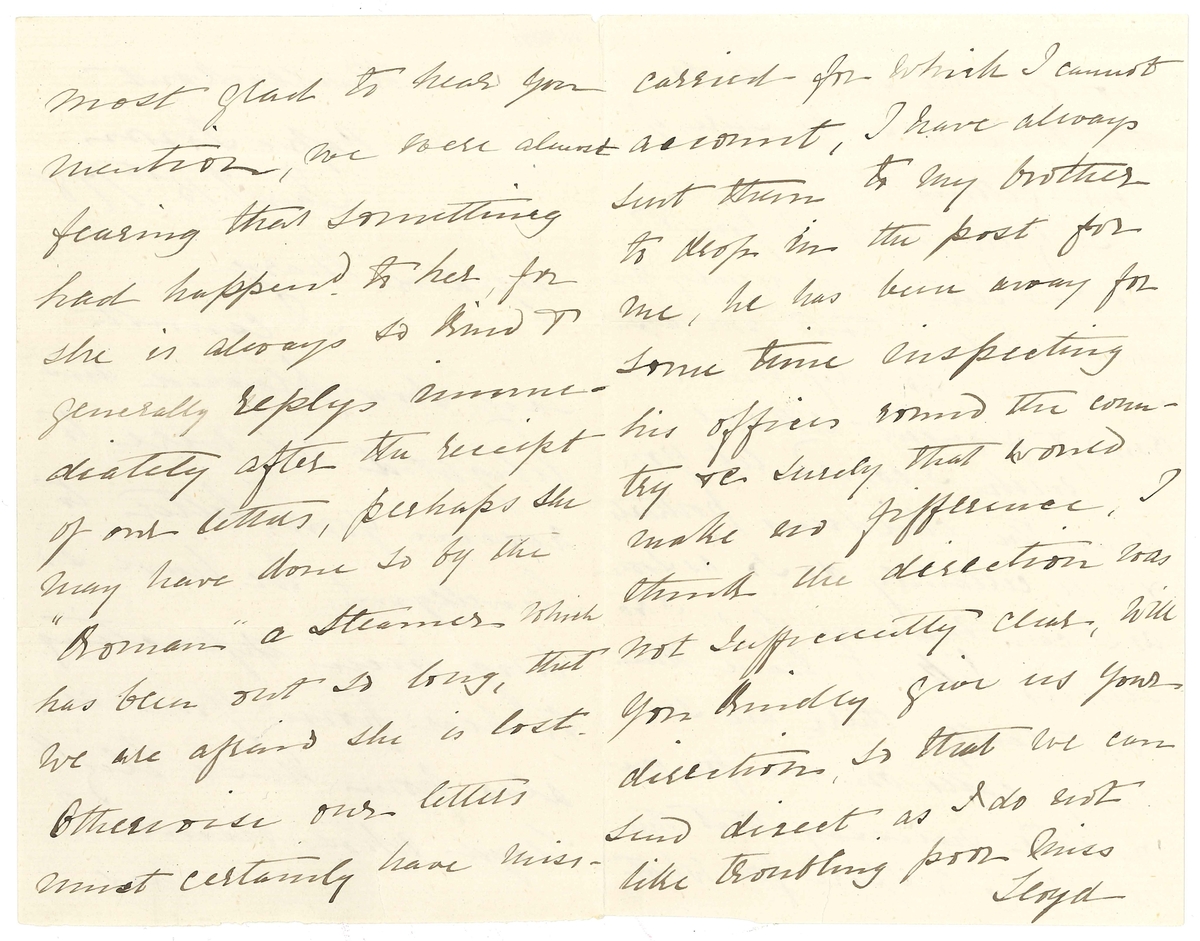 most glad to hear you
mention, we were almost
fearing that something
had happend to her, for
she is always so kind &
generally replys imme-
diately after the receipt
of our letters, perhaps she
may have done so by the
"Roman" a steamer which
has been out so long, that
we are afraid she is lost.
Otherwise our letters
must certainly have miss-
carried for which I cannot
account, I have always
sent them to my brother
to drop in the post for
me, he has been away for
some time inspecting
his offices round the coun-
try &c surely that would
make no difference, I
think the direction was
not sufficiently clear, will
you kindly give us your
direction, so that we can
send direct as I do not
like troubling poor Miss
Lloyd